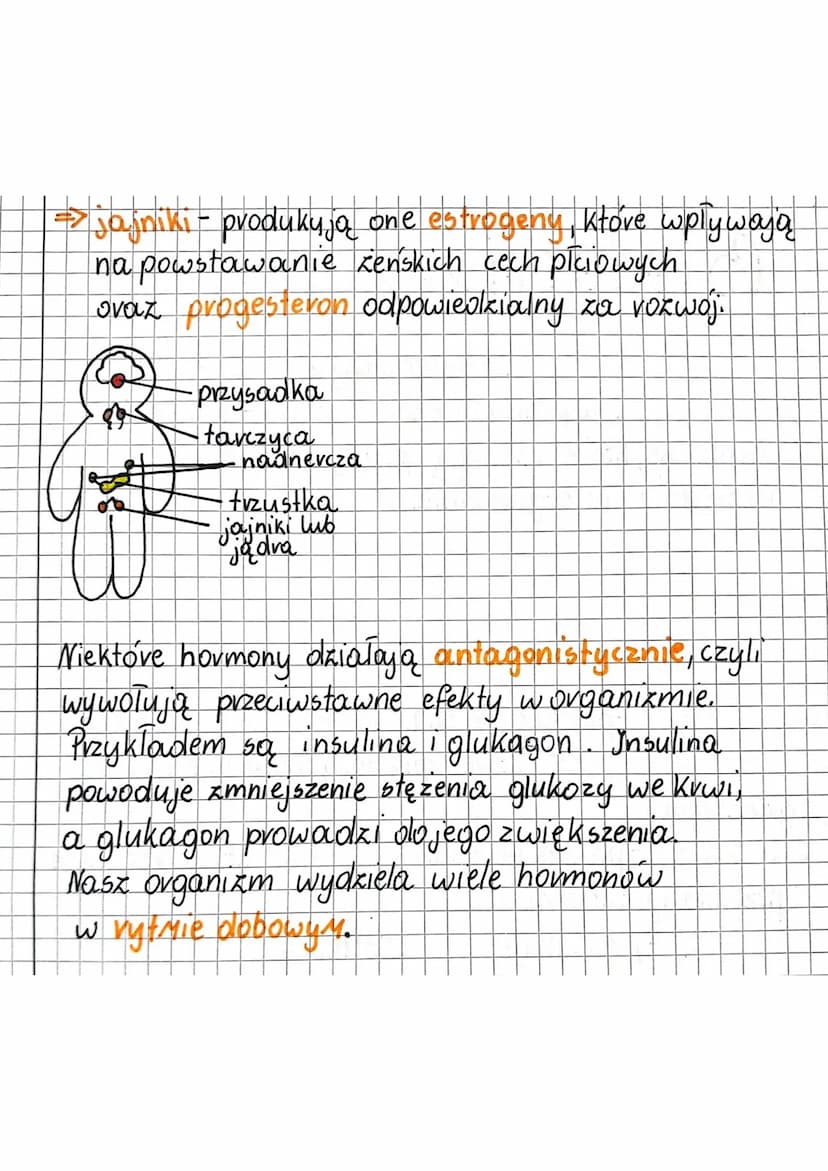 => jajniki - produkują one estrogeny, które wpływają
na powstawanie żeńskich cech płciowych
oraz progesteron odpowiedzialny za rozwój.
przysadka
tarczyca
nadnercza
trzustka
jajniki lub
jądra
Niektóre hormony działają antagonistycznie, czyli
wywołują przeciwstawne efekty w organizmie.
Przykładem są insulina i glukagon. Insulina
powoduje zmniejszenie stężenia glukozy we krwi,
a glukagon prowadzi do jego zwiększenia.
Nasz organizm wydziela wiele hormonów
w rytmie dobowym.